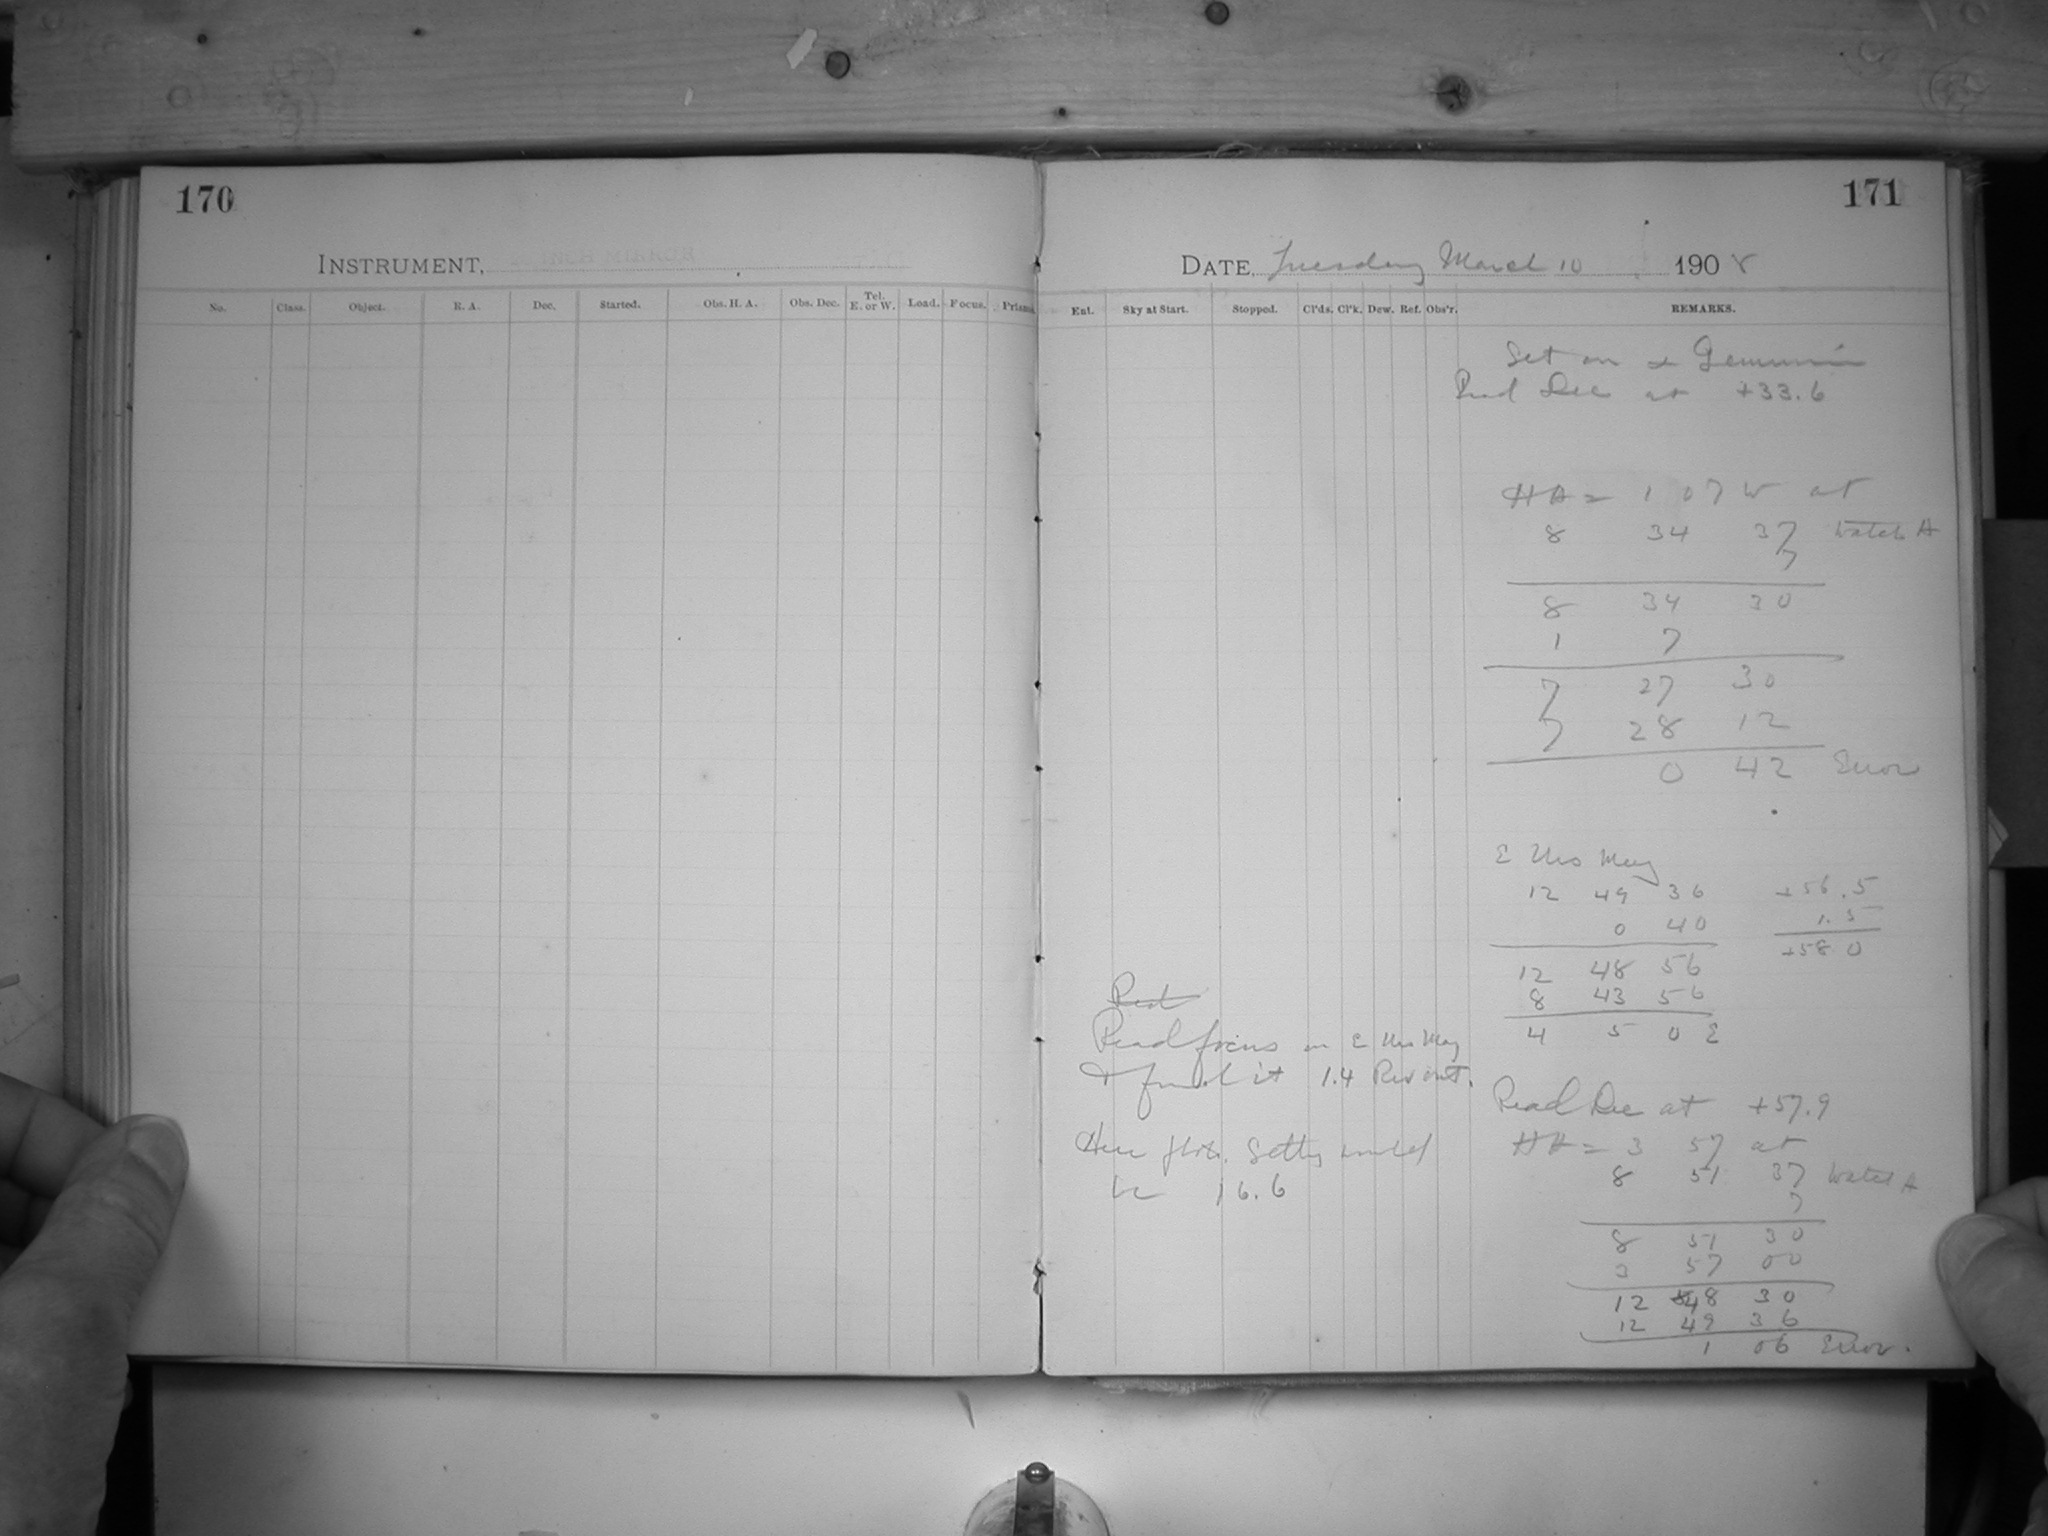 170
INSTRUMENT,
No. Class. Object. R. A. Dec. Started. Obs. H. A. Obs. Dec. Tel. E. or W. Load. Focus. Prisms
171
DATE, Tuesday March 10 1908
Ent. Sky at Start. Stopped. Cl'ds. Cl'k. Dew. Ref. Obs'r. REMARKS.
Set on α Geminorum
Read Dec at +33.6
HA = 1 07 W at
8 34 37 Watch A
7
8 34 30
1 7
7 27 30
7 28 12
0 42 Error
ε Urs Maj
12 49 36 +56.5
0 40 1.5
12 48 56 +58 0
8 43 56
4 5 0 E
Read
Read focus on ε Urs Maj
& found it 1.4 Rev out.
Hence phot. Setting would
be 16.6
Read Dec at +57.9
HA = 3 57 at
8 51 37 Watch A
7
8 51 30
3 57 00
12 48 30
12 49 36
1 06 Error.